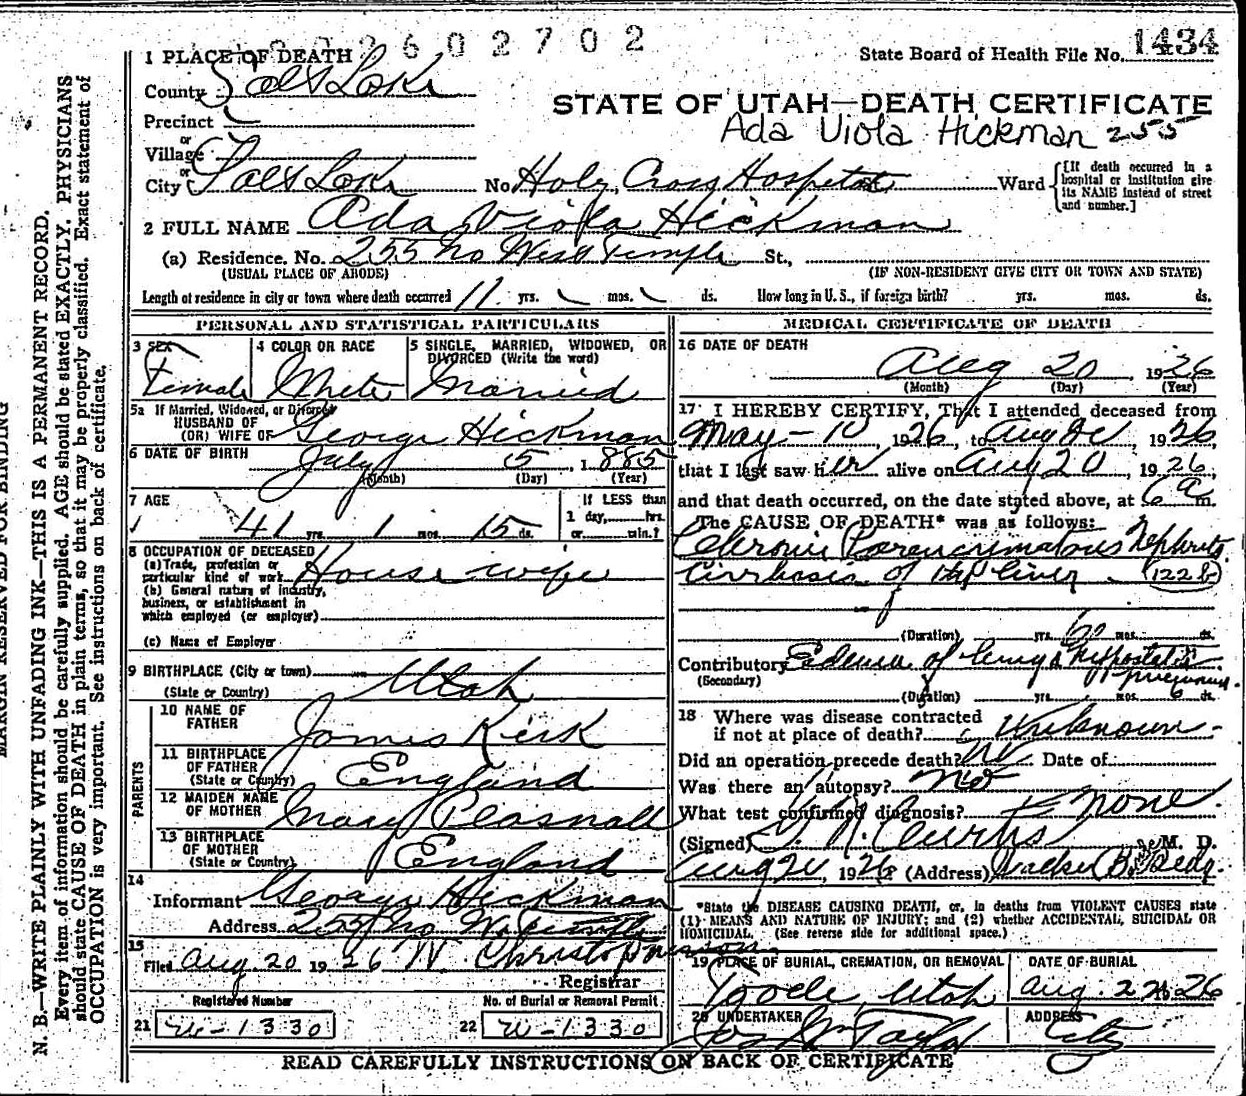 2602702
State Board of Health File No. 1434
1 PLACE OF DEATH
County Salt Lake
STATE OF UTAH—DEATH CERTIFICATE
Precinct
Ada Viola Hickman 255
or
Village
or
City Salt Lake No. Holy Cross Hospital Ward
[If death occurred in a hospital or institution give its NAME instead of street and number.]
2 FULL NAME Ada Viola Hickman
(a) Residence. No. 255 No West Temple St.,
(USUAL PLACE OF ABODE) (IF NON-RESIDENT GIVE CITY OR TOWN AND STATE)
Length of residence in city or town where death occurred 11 yrs. mos. ds. How long in U. S., if foreign birth? yrs. mos. ds.
PERSONAL AND STATISTICAL PARTICULARS
3 SEX Female
4 COLOR OR RACE White
5 SINGLE, MARRIED, WIDOWED, OR DIVORCED (Write the word) Married
5a If Married, Widowed, or Divorced
HUSBAND OF
(OR) WIFE OF George Hickman
6 DATE OF BIRTH July 5, 1885
(Month) (Day) (Year)
7 AGE 41 yrs. 1 mos. 15 ds.
If LESS than
1 day, hrs.
or min.?
8 OCCUPATION OF DECEASED
(a) Trade, profession or
particular kind of work House wife
(b) General nature of industry,
business, or establishment in
which employed (or employer)
(c) Name of Employer
9 BIRTHPLACE (City or town)
(State or Country) Utah
PARENTS
10 NAME OF FATHER James Kirk
11 BIRTHPLACE OF FATHER
(State or Country) England
12 MAIDEN NAME OF MOTHER Mary
13 BIRTHPLACE OF MOTHER
(State or Country) England
14
Informant George Hickman
Address 255 No W Temple
15
Filed Aug. 20 1926
Registrar
Registered Number
21 W-1330
No. of Burial or Removal Permit
22 W-1330
MEDICAL CERTIFICATE OF DEATH
16 DATE OF DEATH
Aug 20, 1926
(Month) (Day) (Year)
17 I HEREBY CERTIFY, That I attended deceased from
May-10, 1926, to Aug 20, 1926
that I last saw her alive on Aug 20, 1926,
and that death occurred, on the date stated above, at 6 a m.
The CAUSE OF DEATH* was as follows:
Chronic Parencymatous Nephritis
Cirrhosis of the liver. 122b
(Duration) yrs. mos. ds.
Contributory Edema of lungs Hypostatic
(Secondary) pneumonia
(Duration) yrs. mos. 6 ds.
18 Where was disease contracted
if not at place of death? Unknown
Did an operation precede death? No Date of
Was there an autopsy? No
What test confirmed diagnosis? None
(Signed) Curtis M. D.
Aug 20, 1926 (Address)
*State the DISEASE CAUSING DEATH, or, in deaths from VIOLENT CAUSES state
(1) MEANS AND NATURE OF INJURY; and (2) whether ACCIDENTAL, SUICIDAL OR
HOMICIDAL. (See reverse side for additional space.)
19 PLACE OF BURIAL, CREMATION, OR REMOVAL Tooele, Utah
DATE OF BURIAL Aug. 2 1926
20 UNDERTAKER Taylor
ADDRESS City
READ CAREFULLY INSTRUCTIONS ON BACK OF CERTIFICATE
MARGIN RESERVED FOR BINDING
N. B.—WRITE PLAINLY WITH UNFADING INK—THIS IS A PERMANENT RECORD.
Every item of information should be carefully supplied. AGE should be stated EXACTLY. PHYSICIANS
should state CAUSE OF DEATH in plain terms, so that it may be properly classified. Exact statement of
OCCUPATION is very important. See instructions on back of certificate.